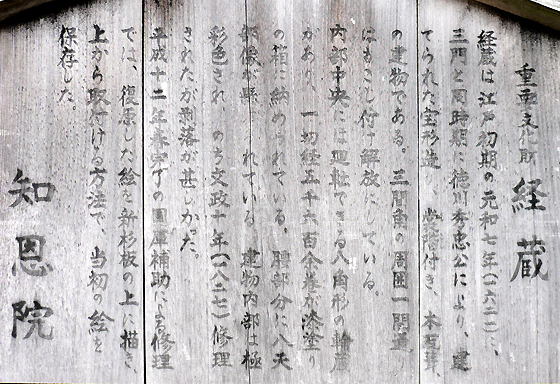 重要文化財 経蔵
経蔵は江戸初期の元和七年(一六二一)に、
三門と同時期に徳川秀忠公により、建
てられた宝形造 裳階付き 本瓦葺、
の建物である。三間角の周囲一間通
はもこし付け解放にしている。
内部中央には廻転できる八角形の輪蔵
があり、一切経五千六百余巻が漆塗り
の箱に納められている。腰部分に八天
部像が懸 れている 建物内部は極
彩色され のち文政十年(一八二七)修理
されたが剥落が甚しかった。
平成十二年春完了の国庫補助による修理
では、復原した絵を新杉板の上に描き、
上から取付ける方法で、当初の絵を
保存した。
知恩院